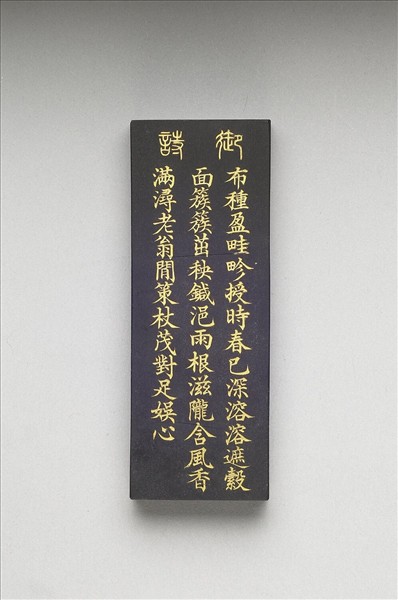 御詩
布種盈畦畛授時春已深溶溶遮縠
面簇簇茁秧鍼浥雨根滋隴含風香
滿潯老翁閒策杖茂對足娛心